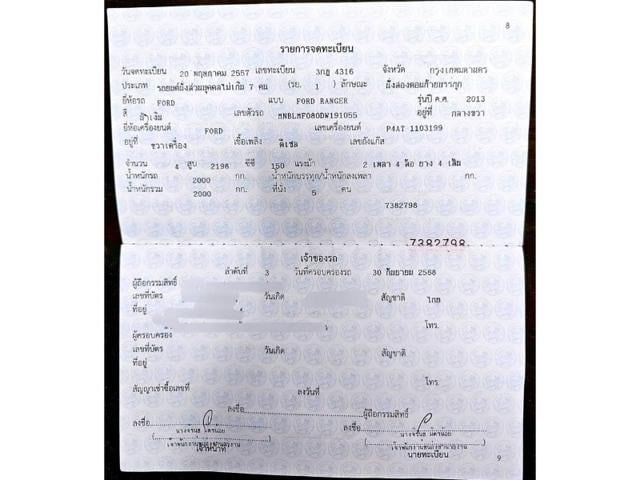 8
รายการจดทะเบียน
วันจดทะเบียน 20 พฤษภาคม 2557 เลขทะเบียน 3กฎ 4316 จังหวัด กรุงเทพมหานคร
ประเภท รถยนต์นั่งส่วนบุคคลไม่เกิน 7 คน (รย. 1 ) ลักษณะ นั่งสองตอนท้ายบรรทุก
ยี่ห้อรถ FORD แบบ FORD RANGER รุ่นปี ค.ศ. 2013
สี เลขตัวรถ MNBLMFO80DW191055 อยู่ที่ กลางขวา
ยี่ห้อเครื่องยนต์ FORD เลขเครื่องยนต์ P4AT 1103199
อยู่ที่ ขวาเครื่อง เชื้อเพลิง ดีเซล เลขถังแก๊ส
จำนวน 4 สูบ 2198 ซีซี 150 แรงม้า 2 เพลา 4 ล้อ ยาง 4 เส้น
น้ำหนักรถ 2000 กก. น้ำหนักบรรทุก/น้ำหนักลงเพลา กก.
น้ำหนักรวม 2000 กก. ที่นั่ง 5 คน
7382798
7382798
เจ้าของรถ
ลำดับที่ 3 วันที่ครอบครองรถ 30 กันยายน 2568
ผู้ถือกรรมสิทธิ์
เลขที่บัตร วันเกิด สัญชาติ ไทย
ที่อยู่ โทร.
ผู้ครอบครอง
เลขที่บัตร วันเกิด สัญชาติ
ที่อยู่
โทร.
สัญญาเช่าซื้อเลขที่ ลงวันที่
ลงชื่อ ผู้ถือกรรมสิทธิ์
ลงชื่อ ลงชื่อ
เจ้าหน้าที่ นายทะเบียน
9